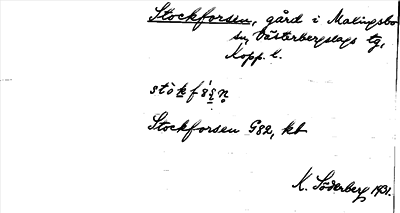 Stockforsen, gård i Malingsbo
sn, Västerbergslags tg,
Kopp. l.
Stockforsen G82, kt
K. Söderberg 1931.